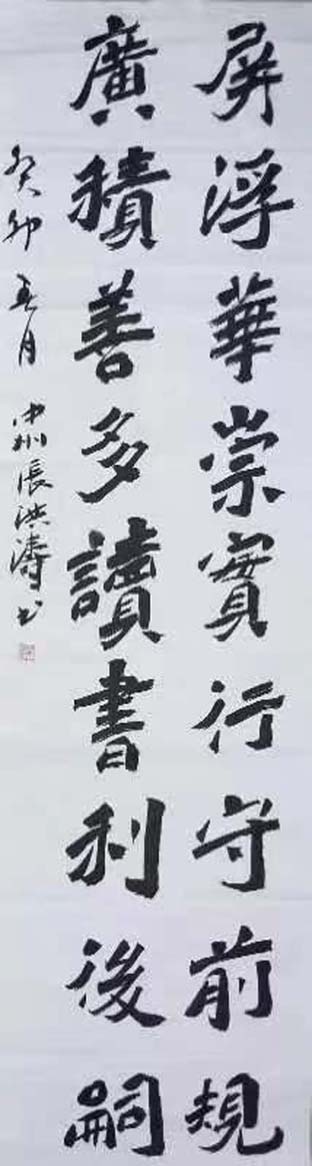 屏浮華崇實行守前規
廣積善多讀書利後嗣
癸卯五月 中州張洪濤书